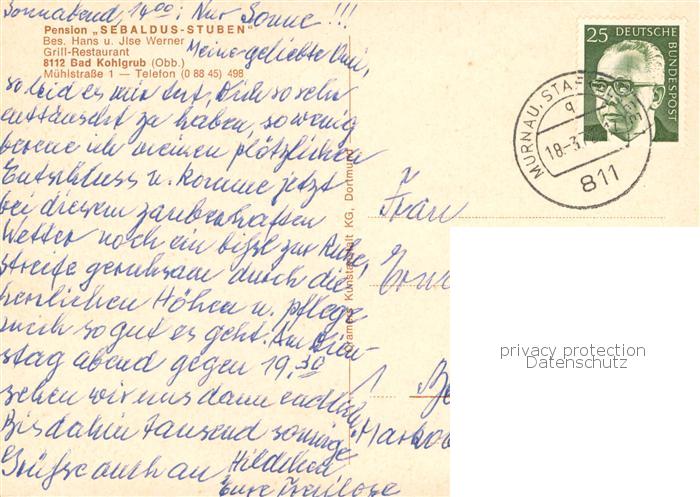 Sonnabend, 14⁰⁰: Nur Sonne!!!
Pension „SEBALDUS-STUBEN"
Bes. Hans u. Jlse Werner
Grill-Restaurant
8112 Bad Kohlgrub (Obb.)
Mühlstraße 1 — Telefon (0 88 45) 498
Meine geliebte
so leid es mir tut, Dich so sehr
enttäuscht zu haben, so wenig
bereue ich meinen plötzlichen
Entschluss u. komme jetzt
bei diesem zauberhaften
Wetter noch ein bissl zur Ruhe,
streife geruhsam durch die
herrlichen Höhen u. pflege
mich so gut es geht. Am Dien-
stag abend gegen 19.30
sehen wir uns dann endlich
Bis dahin tausend sonnige
Grüsse auch an Hildchen
Eure
Krameɾs Kunstanstalt KG, Dortmund
25
DEUTSCHE
BUNDESPOST
MURNAU, STAFFELSEE
18.-3.7
811
Frau
privacy protection
Datenschutz